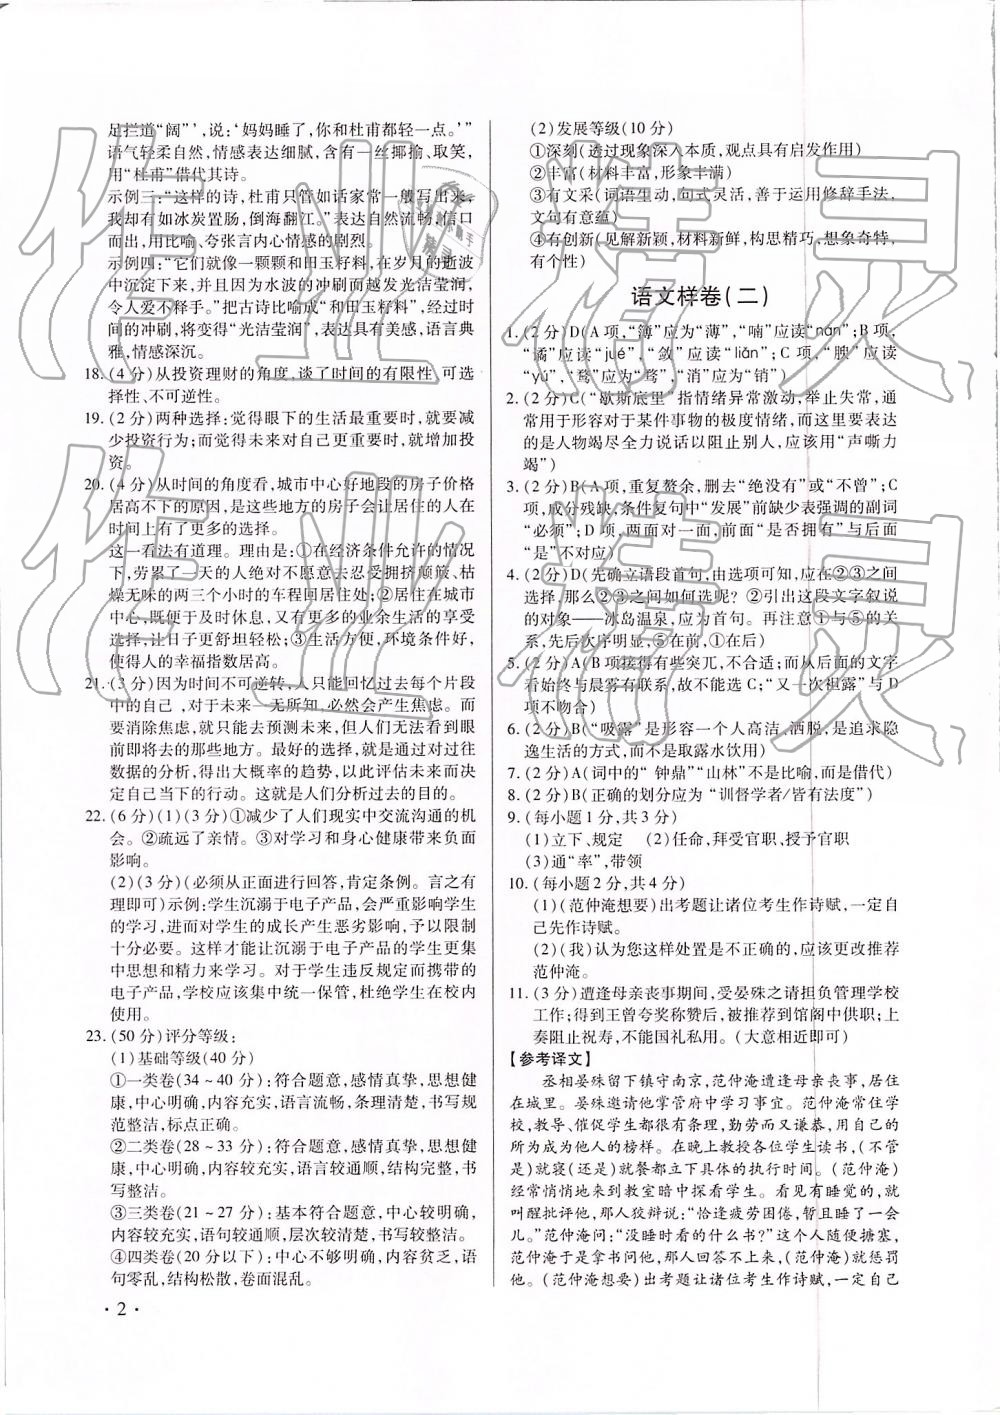 足拦道“阔”’,说:‘妈妈睡了,你和杜甫都轻一点。’”
语气轻柔自然,情感表达细腻,含有一丝揶揄、取笑,
用“杜甫”借代其诗。
示例三:“这样的诗,杜甫只管如话家常一般写出来,
我却有如冰炭置肠,倒海翻江。”表达自然流畅,信口
而出,用比喻、夸张言内心情感的剧烈。
示例四:“它们就像一颗颗和田玉籽料,在岁月的逝波
中沉淀下来,并且因为水波的冲刷而越发光洁莹润,
令人爱不释手。”把古诗比喻成“和田玉籽料”,经过时
间的冲刷,将变得“光洁莹润”,表达具有美感,语言典
雅,情感深沉。
18.(4分)从投资理财的角度,谈了时间的有限性、可选
择性、不可逆性。
19.(2分)两种选择:觉得眼下的生活最重要时,就要减
少投资行为;而觉得未来对自己重要时,就增加投
资。
20.(4分)从时间的角度看,城市中心好地段的房子价格
居高不下的原因,是这些地方的房子会让居住的人在
时间上有了更多的选择。
这一看法有道理。理由是:①在经济条件允许的情况
下,劳累了一天的人绝对不愿意去忍受拥挤颠簸、枯
燥无味的两三个小时的车程回居住处;②居住在城市
中心,既便于及时休息,又有更多的业余生活的享受
选择,让日子更舒坦轻松;③生活方便,环境条件好,
使得人的幸福指数居高。
21.(3分)因为时间不可逆转,人只能回忆过去每个片段
中的自己,对于未来一无所知,必然会产生焦虑。而
要消除焦虑,就只能去预测未来,但人们无法看到眼
前即将去的那些地方。最好的选择,就是通过对过往
数据的分析,得出大概率的趋势,以此评估未来而决
定自己当下的行动。这就是人们分析过去的目的。
22.(6分)(1)(3分)①减少了人们现实中交流沟通的机
会。②疏远了亲情。③对学习和身心健康带来负面
影响。
(2)(3分)(必须从正面进行回答,肯定条例。言之有
理即可)示例:学生沉溺于电子产品,会严重影响学生
的学习,进而对学生的成长产生恶劣影响,予以限制
十分必要。这样才能让沉溺于电子产品的学生更集
中思想和精力来学习。对于学生违反规定而携带的
电子产品,学校应该集中统一保管,杜绝学生在校内
使用。
23.(50分)评分等级:
(1)基础等级(40分)
①一类卷(34~40分):符合题意,感情真挚,思想健
康,中心明确,内容充实,语言流畅,条理清楚,书写规
范整洁,标点正确。
②二类卷(28~33分):符合题意,感情真挚,思想健
康,中心明确,内容较充实,语言较通顺,结构完整,书
写整洁。
③三类卷(21~27分):基本符合题意,中心较明确,
内容较充实,语句较通顺,层次较清楚,书写较整洁。
④四类卷(20分以下):中心不够明确,内容贫乏,语
句零乱,结构松散,卷面混乱。
·2·
(2)发展等级(10分)
①深刻(透过现象深入本质,观点具有启发作用)
②丰富(材料丰富,形象丰满)
③有文采(词语生动,句式灵活,善于运用修辞手法,
文句有意蕴)
④有创新(见解新颖,材料新鲜,构思精巧,想象奇特,
有个性)
语文样卷(二)
1.(2分)D(A项,“簿”应为“薄”,“喃”应读“nán”;B项,
“谲”应读“jué”,“敛”应读“liǎn”;C项,“腴”应读
“yú”,“鹜”应为“骛”,“消”应为“销”)
2.(2分)C(“歇斯底里”指情绪异常激动,举止失常,通
常用于形容对于某件事物的极度情绪,而这里要表达
的是人物竭尽全力说话以阻止别人,应该用“声嘶力
竭”)
3.(2分)B(A项,重复赘余,删去“绝没有”或“不曾”;C
项,成分残缺,条件复句中“发展”前缺少表强调的副词
“必须”;D项,两面对一面,前面“是否拥有”与后面
“是”不对应)
4.(2分)D(先确立语段首句,由选项可知,应在②③之间
选择,那么②③之间如何选呢?②引出这段文字叙说
的对象——冰岛温泉,应为首句。再注意①与⑤的关
系,先后次序明显,⑤在前,①在后)
5.(2分)A(B项接得有些突兀,不合适;而从后面的文字
看始终与晨雾有联系,故不能选C;“又一次袒露”与D
项不吻合)
6.(2分)B(“吸露”是形容一个人高洁、洒脱,是追求隐
逸生活的方式,而不是取露水饮用)
7.(2分)A(词中的“钟鼎”“山林”不是比喻,而是借代)
8.(2分)B(正确的划分应为“训督学者/皆有法度”)
9.(每小题1分,共3分)
(1)立下、规定 (2)任命,拜受官职,授予官职
(3)通“率”,带领
10.(每小题2分,共4分)
(1)(范仲淹想要)出考题让诸位考生作诗赋,一定自
己先作诗赋。
(2)(我)认为您这样处置是不正确的,应该更改推荐
范仲淹。
11.(3分)遭逢母亲丧事期间,受晏殊之请担负管理学校
工作;得到王曾夸奖称赞后,被推荐到馆阁中供职;上
奏阻止祝寿,不能国礼私用。(大意相近即可)
【参考译文】
丞相晏殊留下镇守南京,范仲淹遭逢母亲丧事,居住
在城下。晏殊邀请他掌管府中学习事宜。范仲淹常住学
校,教导、催促学生都很有条理,勤劳而又恭谦,用自己的
所为成为他人的榜样。在晚上教授各位学生读书,(不管
是)就寝(还是)就餐都立下具体的执行时间。(范仲淹)
经常悄悄地来到教室暗中探看学生。看见有睡觉的,就
叫醒批评他,那人狡辩说:“恰逢疲劳困倦,暂且睡了一会
儿。”范仲淹问:“没睡时看的什么书?”这个人随便搪塞,
范仲淹于是拿书问他,那人回答不上来,(范仲淹)就惩罚
他。(范仲淹想要)出考题让诸位考生作诗赋,一定自己
作业精灵
作业精灵